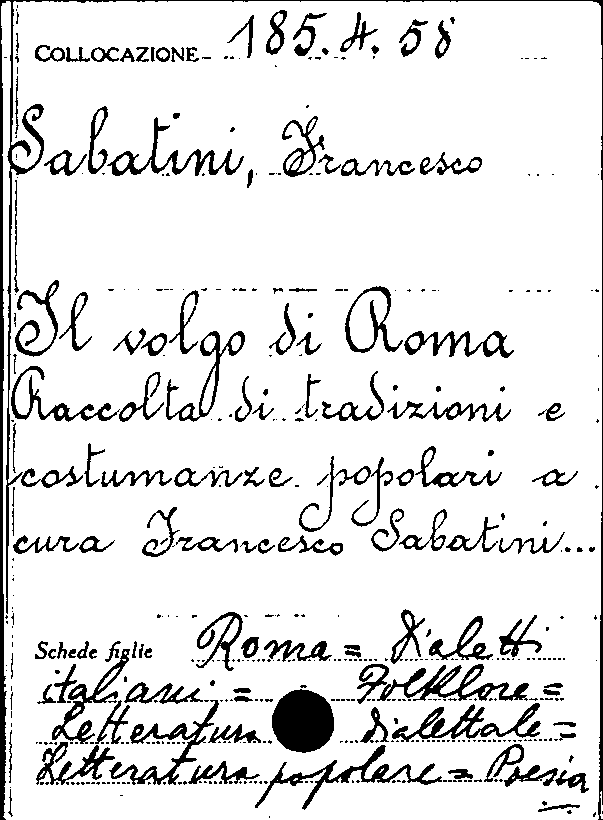 COLLOCAZIONE 185.4.58
Sabatini, Francesco
Il volgo di Roma
Raccolta di tradizioni e
costumanze popolari a
cura Francesco Sabatini...
Schede figlie Roma = Dialetti
italiani = Folklore =
Letteratura dialettale =
Letteratura popolare = Poesia